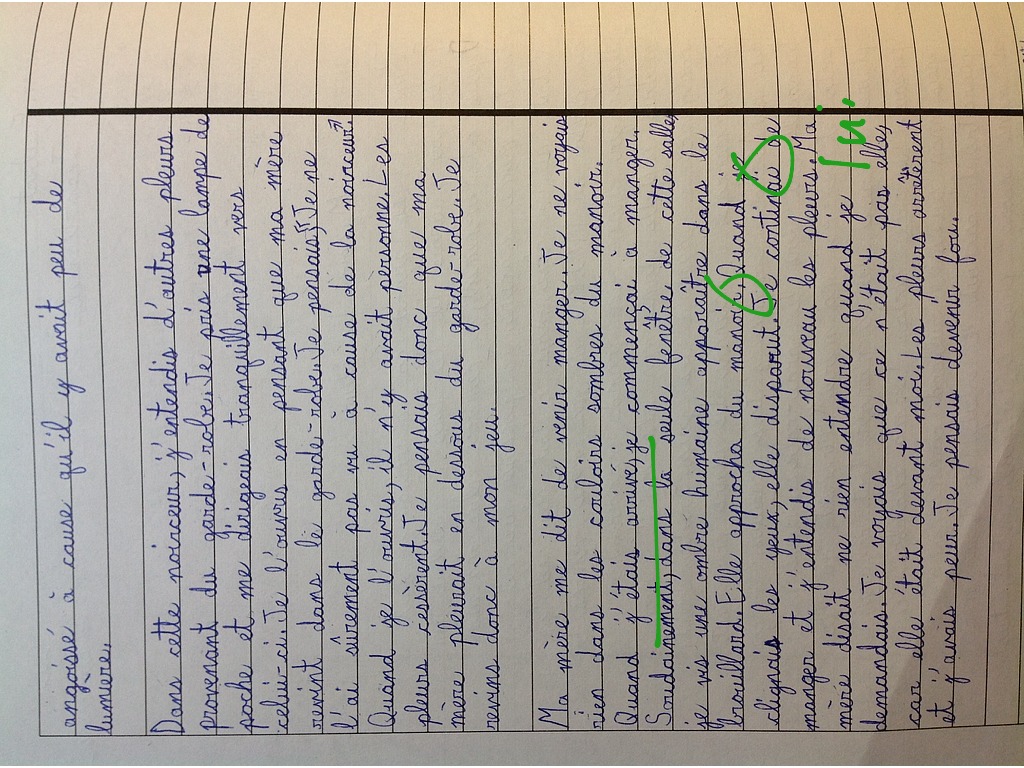 angoissé à cause qu'il y avait peu de
lumière.
Dans cette noirceur, j'entendis d'autres pleurs
provenant du garde-robe. Je pris une lampe de
poche et me dirigeais tranquillement vers
celui-ci. Je l'ouvris en pensant que ma mère
revint dans le garde-robe. Je pensais, « Je ne
l'ai sûrement pas vu à cause de la noirceur ».
Quand je l'ouvris, il n'y avait personne. Les
pleurs cessèrent. Je pensais donc que ma
mère pleurait en dessous du garde-robe. Je
revins donc à mon jeu.
Ma mère me dit de venir manger. Je ne voyais
rien dans les couloirs sombres du manoir.
Quand j'étais arrivé, je commençai à manger.
Soudainement, dans la seule fenêtre de cette salle,
je vis une ombre humaine apparaître dans le
brouillard. Elle approcha du manoir. Quand je
clignais les yeux, elle disparut. Je continuai de
manger et j'entendis de nouveau les pleurs. Ma
mère disait ne rien entendre quand je lui
demandais. Je voyais que ce n'était pas elle,
car elle était devant moi. Les pleurs arrêtèrent
et j'avais peur. Je pensais devenir fou.